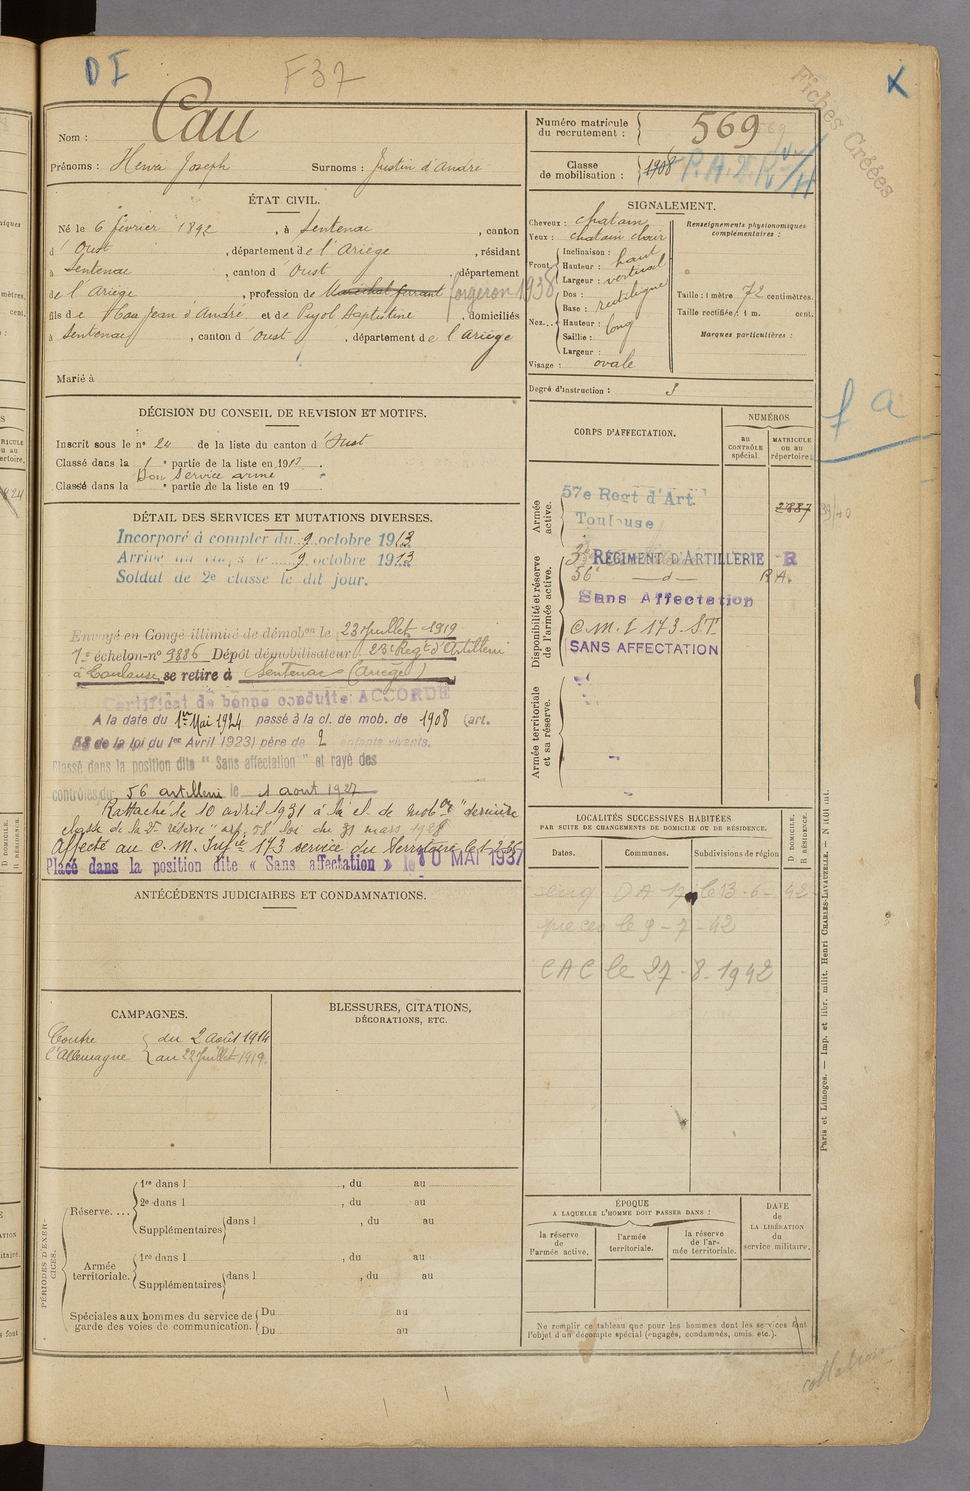 DI
F37
X
Fiches Créées
Nom : Cau
Prénoms : Henri Joseph Surnoms : Justin d'André
Numéro matricule du recrutement : 569
Classe de mobilisation : 1908
ÉTAT CIVIL.
Né le 6 février 1892, à Sentenac, canton
d'Oust, département de l'Ariège, résidant
à Sentenac, canton d'Oust, département
de l'Ariège, profession de Maréchal ferrant forgeron 1938
fils de Cau Jean d'André et de Pujol Baptistine, domiciliés
à Sentenac, canton d'Oust, département de l'Ariège
Marié à
SIGNALEMENT.
Cheveux : chatain
Yeux : chatain clair
Front Inclinaison :
Hauteur : haut
Largeur : vertical
Nez Dos : rectiligne
Base :
Hauteur : long
Saillie :
Largeur :
Visage : ovale
Renseignements physionomiques complémentaires :
Taille : 1 mètre 72 centimètres.
Taille rectifiée : 1 m. cent.
Marques particulières :
Degré d'instruction : 3
fa
DÉCISION DU CONSEIL DE REVISION ET MOTIFS.
Inscrit sous le n° 24 de la liste du canton d'Oust
Classé dans la 1e partie de la liste en 1913.
Bon service armé
Classé dans la e partie de la liste en 19
DÉTAIL DES SERVICES ET MUTATIONS DIVERSES.
Incorporé à compter du 9 octobre 1913
Arrivé au corps le 9 octobre 1913
Soldat de 2e classe le dit jour.
Envoyé en Congé illimité de démobon le 23 Juillet 1919
7e échelon n° 9886 Dépôt démobilisateur 23e Regt d'Artillerie
à Toulouse se retire à Sentenac (Ariège)
Certificat de bonne conduite ACCORDÉ
A la date du 1er Mai 1924 passé à la cl. de mob. de 1908 (art.
58 de la loi du 1er Avril 1923) père de 2 enfants vivants.
Classé dans la position dite "Sans affectation" et rayé des
contrôles du 56 artillerie le 1 aout 1927
Rattaché le 10 avril 1931 à la cl. de mobon "dernière
classe de la 2e réserve" art. 58 loi du 31 mars 1928
Affecté au C.M. Infie 173 service du Territoire le 1-2-35
Placé dans la position dite « Sans affectation » le 10 MAI 1937
CORPS D'AFFECTATION.
NUMÉROS
au contrôle spécial.
MATRICULE ou au répertoire.
Armée active.
57e Regt d'Art.
Toulouse
2887
39/40
Disponibilité et réserve de l'armée active.
3e RÉGIMENT D'ARTILLERIE R
56e —d— RA.
Sans Affectation
C.M.I 173 S.T.
SANS AFFECTATION
Armée territoriale et sa réserve.
LOCALITÉS SUCCESSIVES HABITÉES
PAR SUITE DE CHANGEMENTS DE DOMICILE OU DE RÉSIDENCE.
Dates. Communes. Subdivisions de région
D DOMICILE.
R RÉSIDENCE.
DA 17 le 13-6-42
pieces le 9-7-42
CAC le 27-8-1942
ANTÉCÉDENTS JUDICIAIRES ET CONDAMNATIONS.
CAMPAGNES.
Contre l'Allemagne
du 2 Août 1914
au 22 Juillet 1919.
BLESSURES, CITATIONS,
DÉCORATIONS, ETC.
PÉRIODES D'EXERCICES.
Réserve. 1re dans l , du au
2e dans l , du au
Supplémentaires dans l , du au
du au
Armée territoriale. 1re dans l , du au
Supplémentaires dans l , du au
Spéciales aux hommes du service de garde des voies de communication. Du au
Du au
ÉPOQUE
A LAQUELLE L'HOMME DOIT PASSER DANS :
la réserve de l'armée active.
l'armée territoriale.
la réserve de l'armée territoriale.
DATE de LA LIBÉRATION du service militaire.
Ne remplir ce tableau que pour les hommes dont les services font
l'objet d'un décompte spécial (engagés, condamnés, omis, etc.).
Paris et Limoges. — Imp. et libr. milit. Henri CHARLES-LAVAUZELLE.